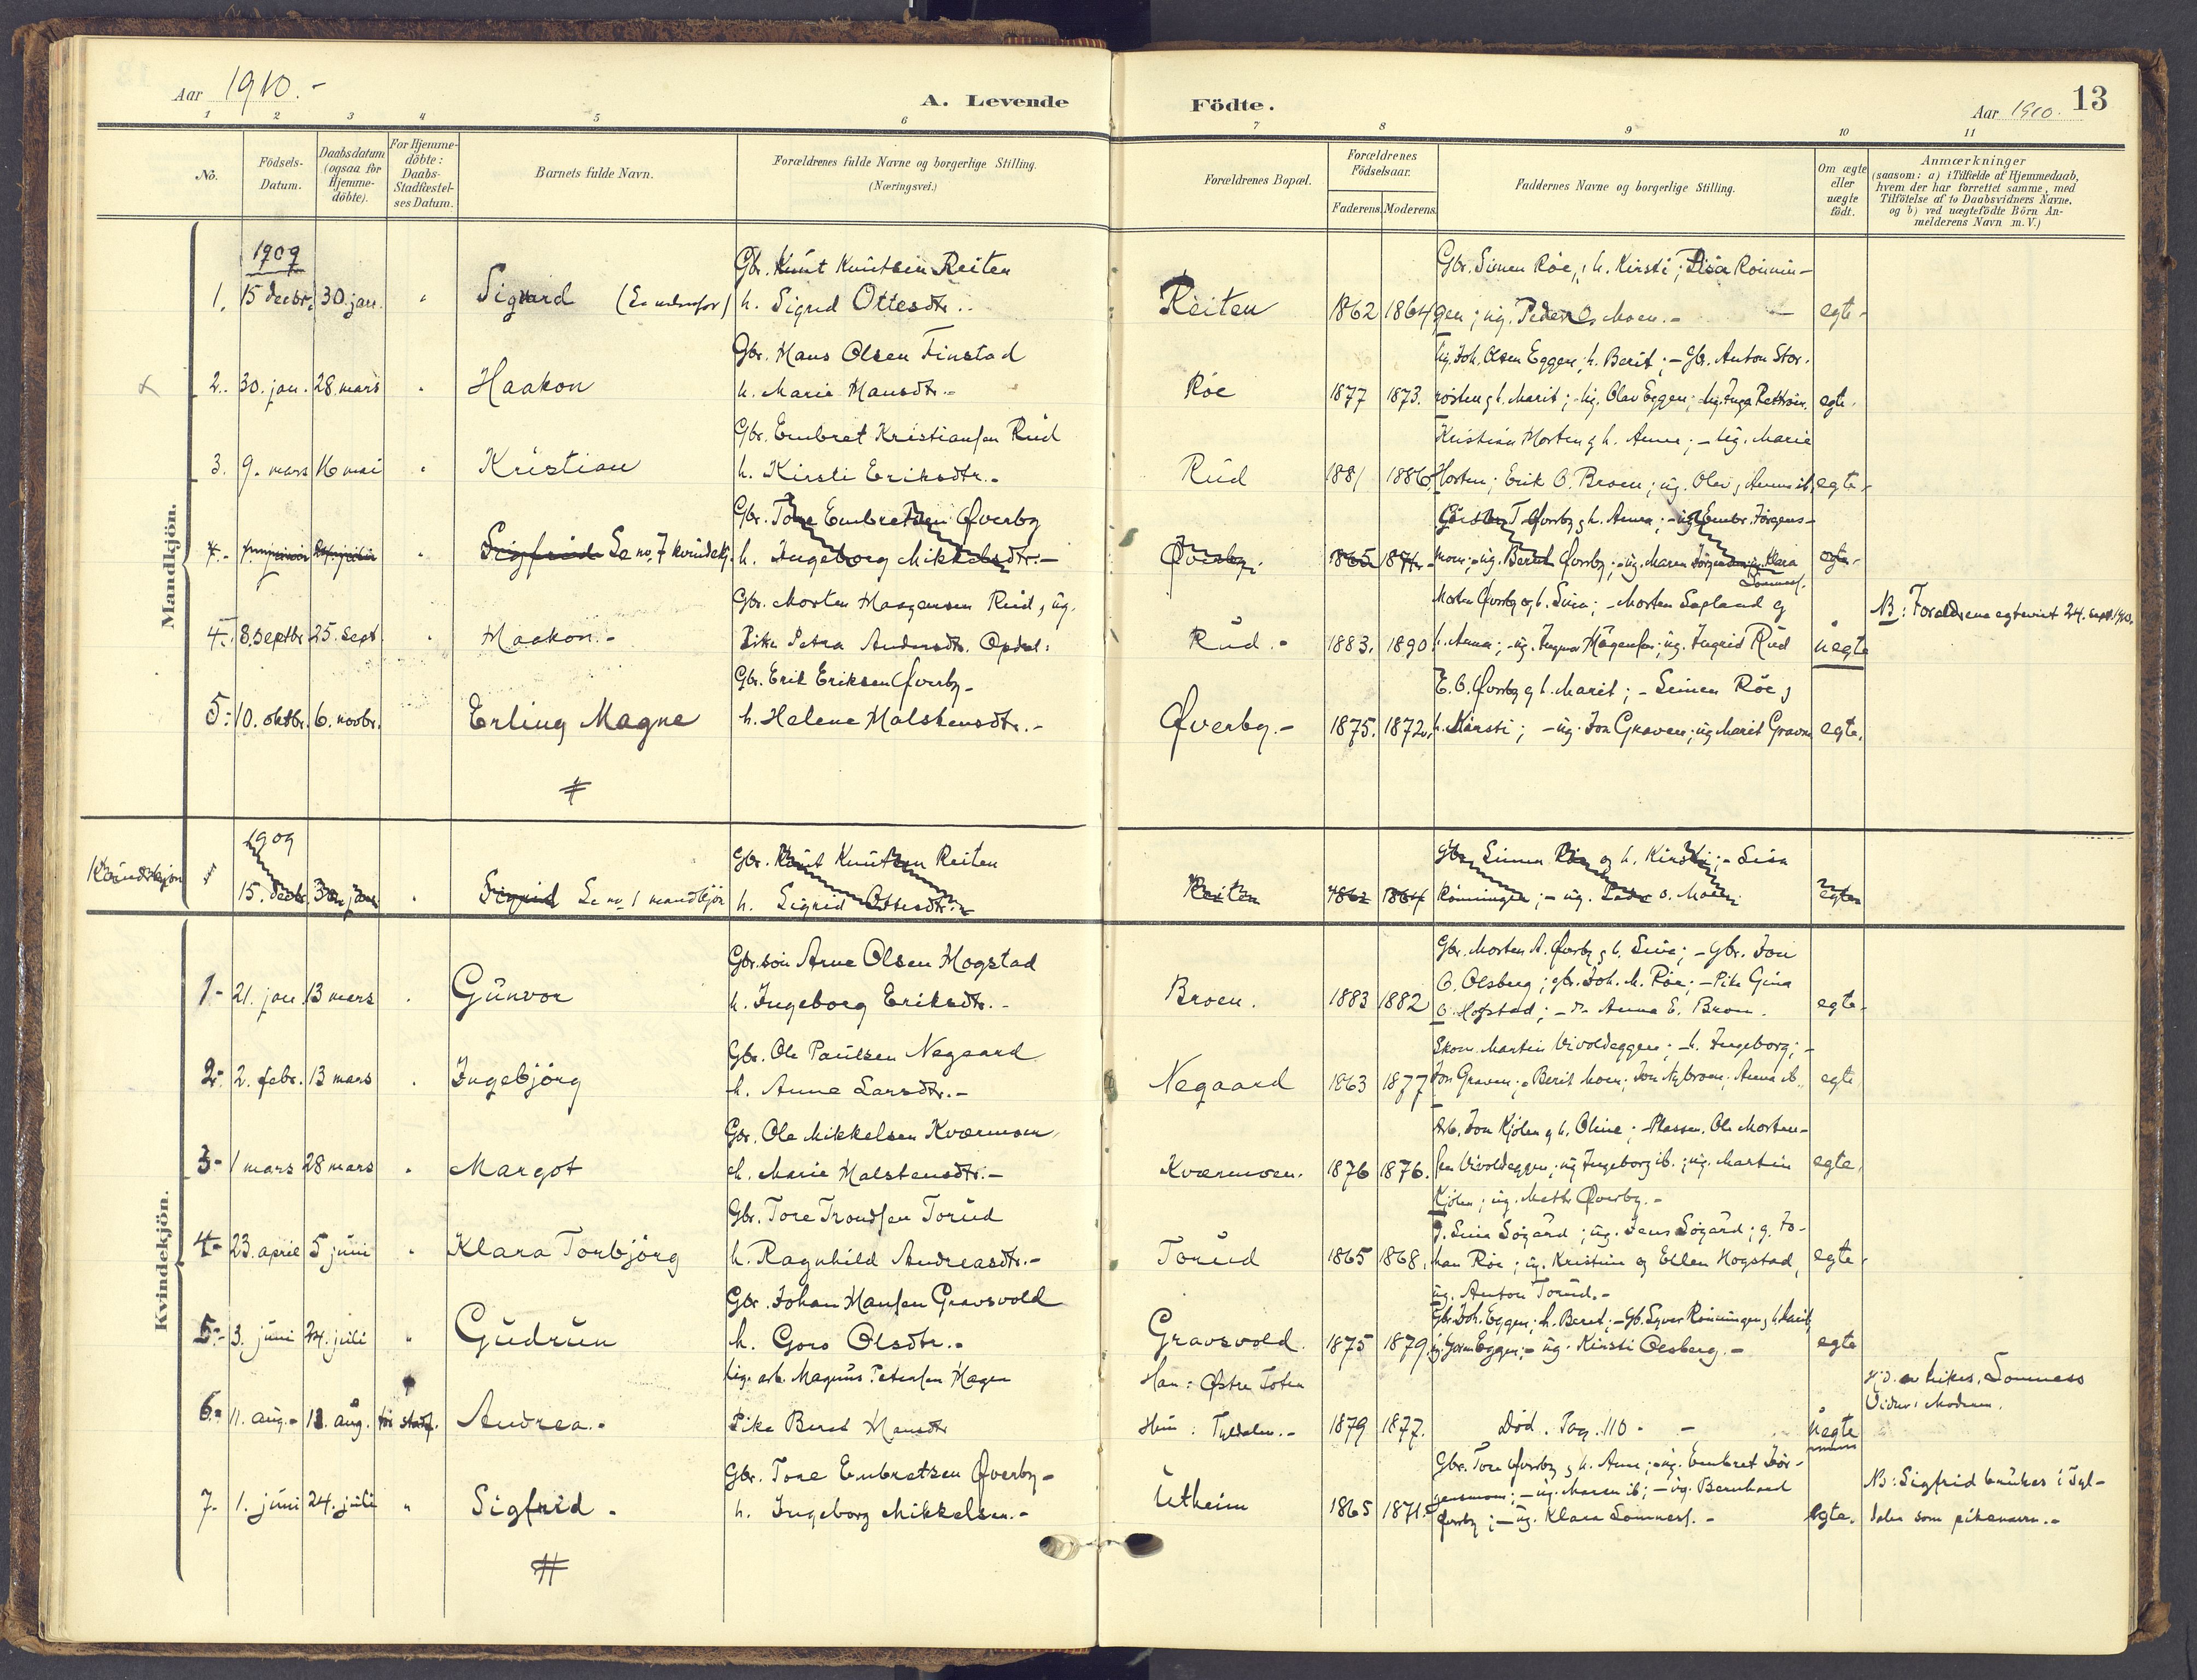 Aar 1910.-
A. Levende
Födte.
Aar 1910.
13
1 2 3 4 5 6 7 8 9 10 11
No.
Födsels-Datum.
Daabsdatum (ogsaa for Hjemme-döbte).
For Hjemme-döbte: Daabs-Stadfæstel-ses Datum.
Barnets fulde Navn.
Forældrenes fulde Navne og borgerlige Stilling. (Næringsvei.)
Forældrenes Bopæl.
Forældrenes Födselsaar.
Faderens. Moderens.
Faddernes Navne og borgerlige Stilling.
Om ægte eller uægte födt.
Anmærkninger
(saasom: a) i Tilfælde af Hjemmedaab,
hvem der har forrettet samme, med
Tilföielse af to Daabsvidners Navne,
og b) ved uægtefödte Börn An-
melderens Navn m. V.)
Mandkjön.
1909
Gbr. Knut Knutsen Reiten
Gbr. Simen Röe, h. Kirsti; Lisa Rönnin-
1. 15 decbr. 30. jan. " Sigurd (Se nedenfor) h. Sigrid Ottesdtr.. Reiten 1862 1864 gen; ug. Peder O. Moen.- egte-
Gbr. Hans Olsen Finstad
ug. Joh. Olsen Eggen, h. Berit; - Gbr. Anton Stor-
2.. 30. jan. 28 mars " Haakon h. Marie Hansdtr.- Röe 1877 1873. rösten, h. Marit; ug. Olav Eggen; ug. Inga
egte.
Gbr. Embret Kristiansen Rud
Kristian Horten, h. Anne; - ug. Marie
3. 9. mars 16 mai " Kristian h. Kirsti Eriksdtr.. Rud 1881 1886. Horten; Erik O. Broen; ug. Olav, Anne ib. egte-
Gbr. Tore Embretsen Øverby
T. Øverby, h. Anna; - ug. Embr. Jörgens-
4.- " Sigfrid Se no. 7 kvindekj. h. Ingeborg Mikkelsdtr.- Øverby. 1865 1871- moen; ug. Øverby; - ug. Maren Klara egte-
Gbr. Morten Haagensen Rud, ug.
Morten Øverby og h. Sina; - Morten Sagland og
NB: Forældrene egteviet 24. sept. 1910.
4.- 8. septbr. 25. sept " Haakon.- Pike Petra Andersdtr. Opdal: Rud.- 1883. 1890. h. Anna; - ug. Haagensen; ug. Ingrid Rud uegte
Gbr. Erik Eriksen Øverby-
E. O. Øverby og h. Marit; - Simen Röe,
5: 10. oktbr. 6. novbr. Erling Magne h. Helene Halstensdtr.- Øverby.- 1875. 1872. h. Kirsti; - ug. Jon Graven; ug. Marit Graven egte.
Kvindekjøn
1909
Gbr. Knut Knutsen Reiten
Gbr. Simen Röe og h. Kirsti; - Lisa
1 15. decbr. 30. jan. " Sigrid Se no 1 mandkjön h. Sigrid Ottesdtr.. Reiten 1862 1864 Rönningen; - ug. Peder O. Moen. egte
Kvindekjön.
Gbr. sön Arne Olsen Hogstad
Gbr. Morten A. Øverby, h. Sina; - Gbr. Jon
1- 21. jan. 13 mars " Gunvor h. Ingeborg Eriksdtr.- Broen. 1883 1882 O. Olsberg; gbr. Joh. M. Röe; - Pike Gina
O. Hogstad; - Anna E. Broen. egte-
Gbr. Ole Paulsen Negaard
Skom. Martin Vivoldeggen; - h. Ingeborg; -
2- 2. febr. 13 mars " Ingebjörg h. Anne Larsdtr.- Negaard 1863 1877 Jon Graven; Berit Moen; Jon Nybroen; Anna ib. egte
Gbr. Ole Mikkelsen Kværnmoen
Arb. Jon Kjölen, h. Oline; - Plassm. Ole Morten-
3- 1 mars 28 mars " Margot h. Marie Halstensdtr.- Kværnmoen. 1876 1876. sen Vivoldeggen; ug. Ingeborg ib.; ug. Martin egte.
Kjölen; ug. Øverby.-
Gbr. Tore Trondsen Torud
Sina Sögård; ug. Jens Sögård; g. Jo-
4- 23. april 5 juni " Klara Torbjörg h. Ragnhild Andreasdtr.- Torud 1865 1868. han Röe; ug. Kristine og Ellen Hogstad, egte-
ug. Anton Torud.-
Gbr. Johan Hansen Gravsvold
Gbr. Joh. Eggen; h. Beret; - Gb. Syver Rönningen, h. Marit
5- 3. juni 24. juli " Gudrun h. Goro Olsdtr.- Gravsvold. 1875 1879. Eggen; - ug. Kirsti Olsberg.- egte
Ug. arb. Magnus Petersen Hagen
Han: Østre Toten
Sömness
Moderen.
6- 11. aug.- 12. aug. för stadf. Andrea.- Pike Beret Hansdtr Hun: Tyldalen.- 1879 1877. Död. Pag. 110.- uegte
Gbr. Tore Embretsen Øverby-
Gbr. Tore Øverby, h. Anne; - ug. Embret Jör-
NB: Sigfrid brukes i Tyl-
7- 1. juni 24. juli " Sigfrid. h. Ingeborg Mikkelsen.- Utheim 1865 1871. gensmoen; - ug. Maren ib; - ug. Bernhard egte. dalen som pikenavn.-
Øverby; - ug. Klara Sömness.-